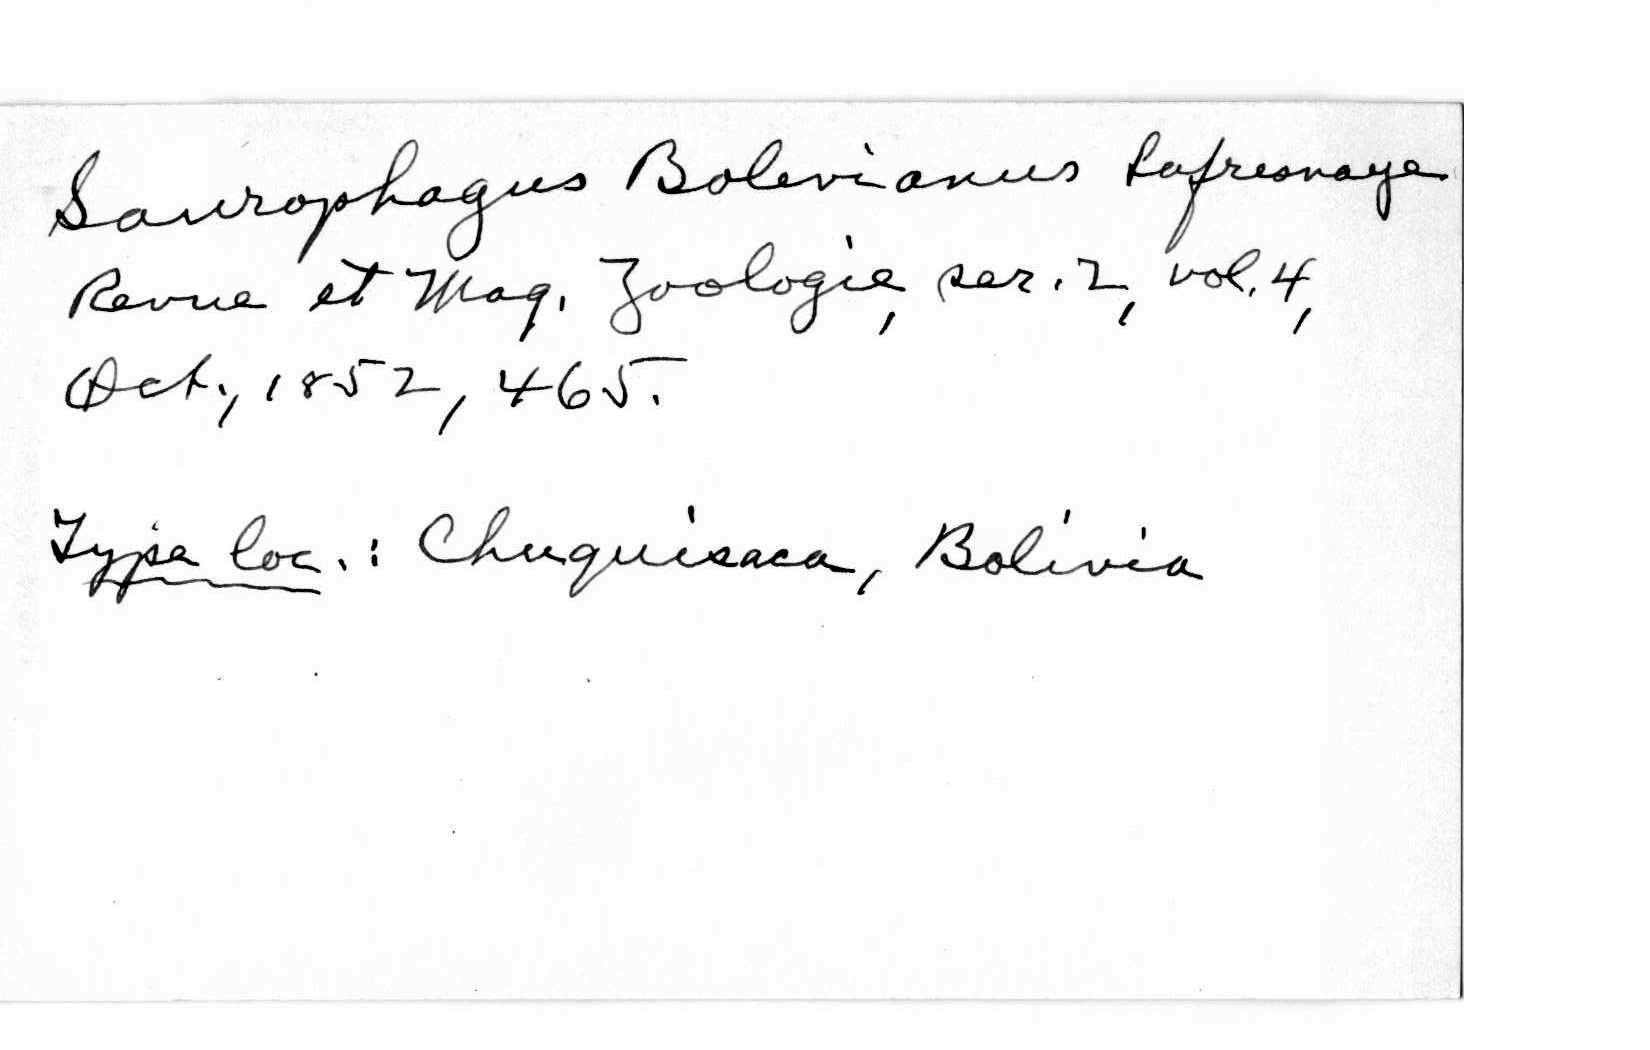 Saurophagus Bolivianus Lafresnaye
Revue et Mag. Zoologie, ser. 2, vol. 4,
Oct., 1852, 465.
Type loc.: Chuquisaca, Bolivia